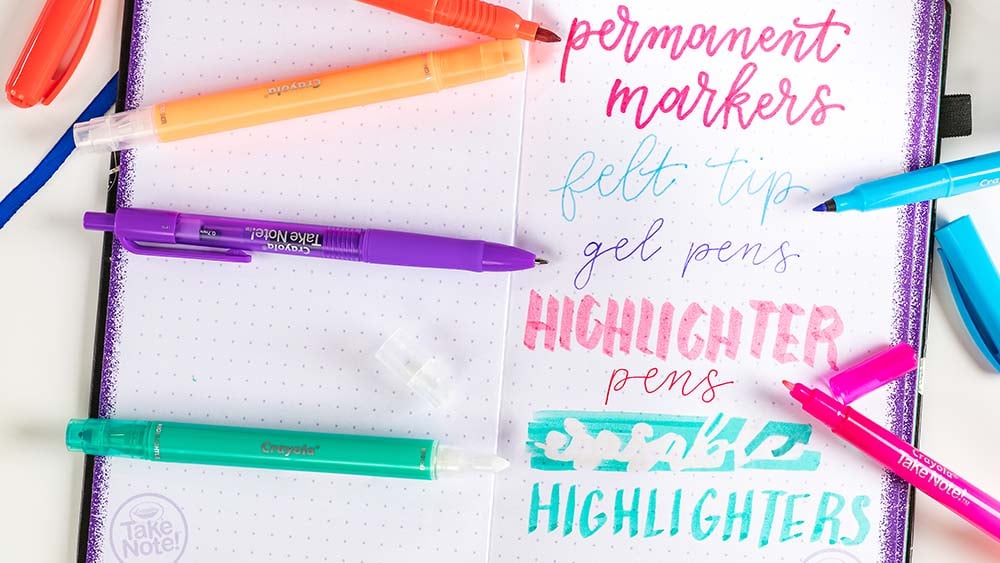 permanent
markers
felt tip
gel pens
HIGHLIGHTER
pens
erasable
HIGHLIGHTERS
Crayola
Crayola
Take Note!
Crayola
Take Note!
Crayola
Take Note!